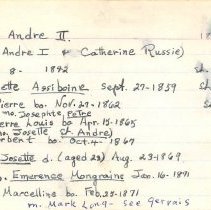 Andre II.
Andre I & Catherine Russie)
8- 1842 sh.
ette Assiboine Sept. 27-1859 Sh
Pierre bo. Nov. 27-1862
mo. Josephte Petre
erre Louis bo Apr. 15-1865
mo. Josette St. Andre)
bert bo Oct. 4-1867
Josette d. (aged 28) Aug. 23-1869
Emerence Mongrains Jan. 16-1871
Marcelline bo. Feb. 25-1871
m. Mark Long - see Gervais